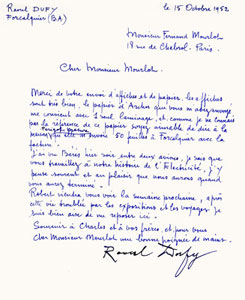 Raoul DUFY
Forcalquier (BA)
le 15 Octobre 1952
Monsieur Fernand Mourlot
18 rue de Chabrol. Paris.
Cher Monsieur Mourlot
Merci de votre envoi d'affiches et de papier, les affiches
sont très bien, le papier d'Arches que vous m'avez envoyé
me convient avec 1 seul laminage, et comme je ne connais
pas la référence de ce papier soyez aimable de dire à la
de m'en envoyer 50 feuilles à Forcalquier avec la
facture.
J'ai vu Berès hier soir entre deux avions, je sais que
vous travaillez à notre histoire de l'Electricité, j'y
pense souvent et au plaisir que nous aurons quand
vous aurez terminé.
Robert viendra vous voir la semaine prochaine, après
cette vie troublée par les expositions et les voyages je
suis bien aise de me reposer ici.
Souvenir à Charles et à vos frères, et pour vous
Cher Monsieur Mourlot une bonne poignée de mains.
Raoul Dufy